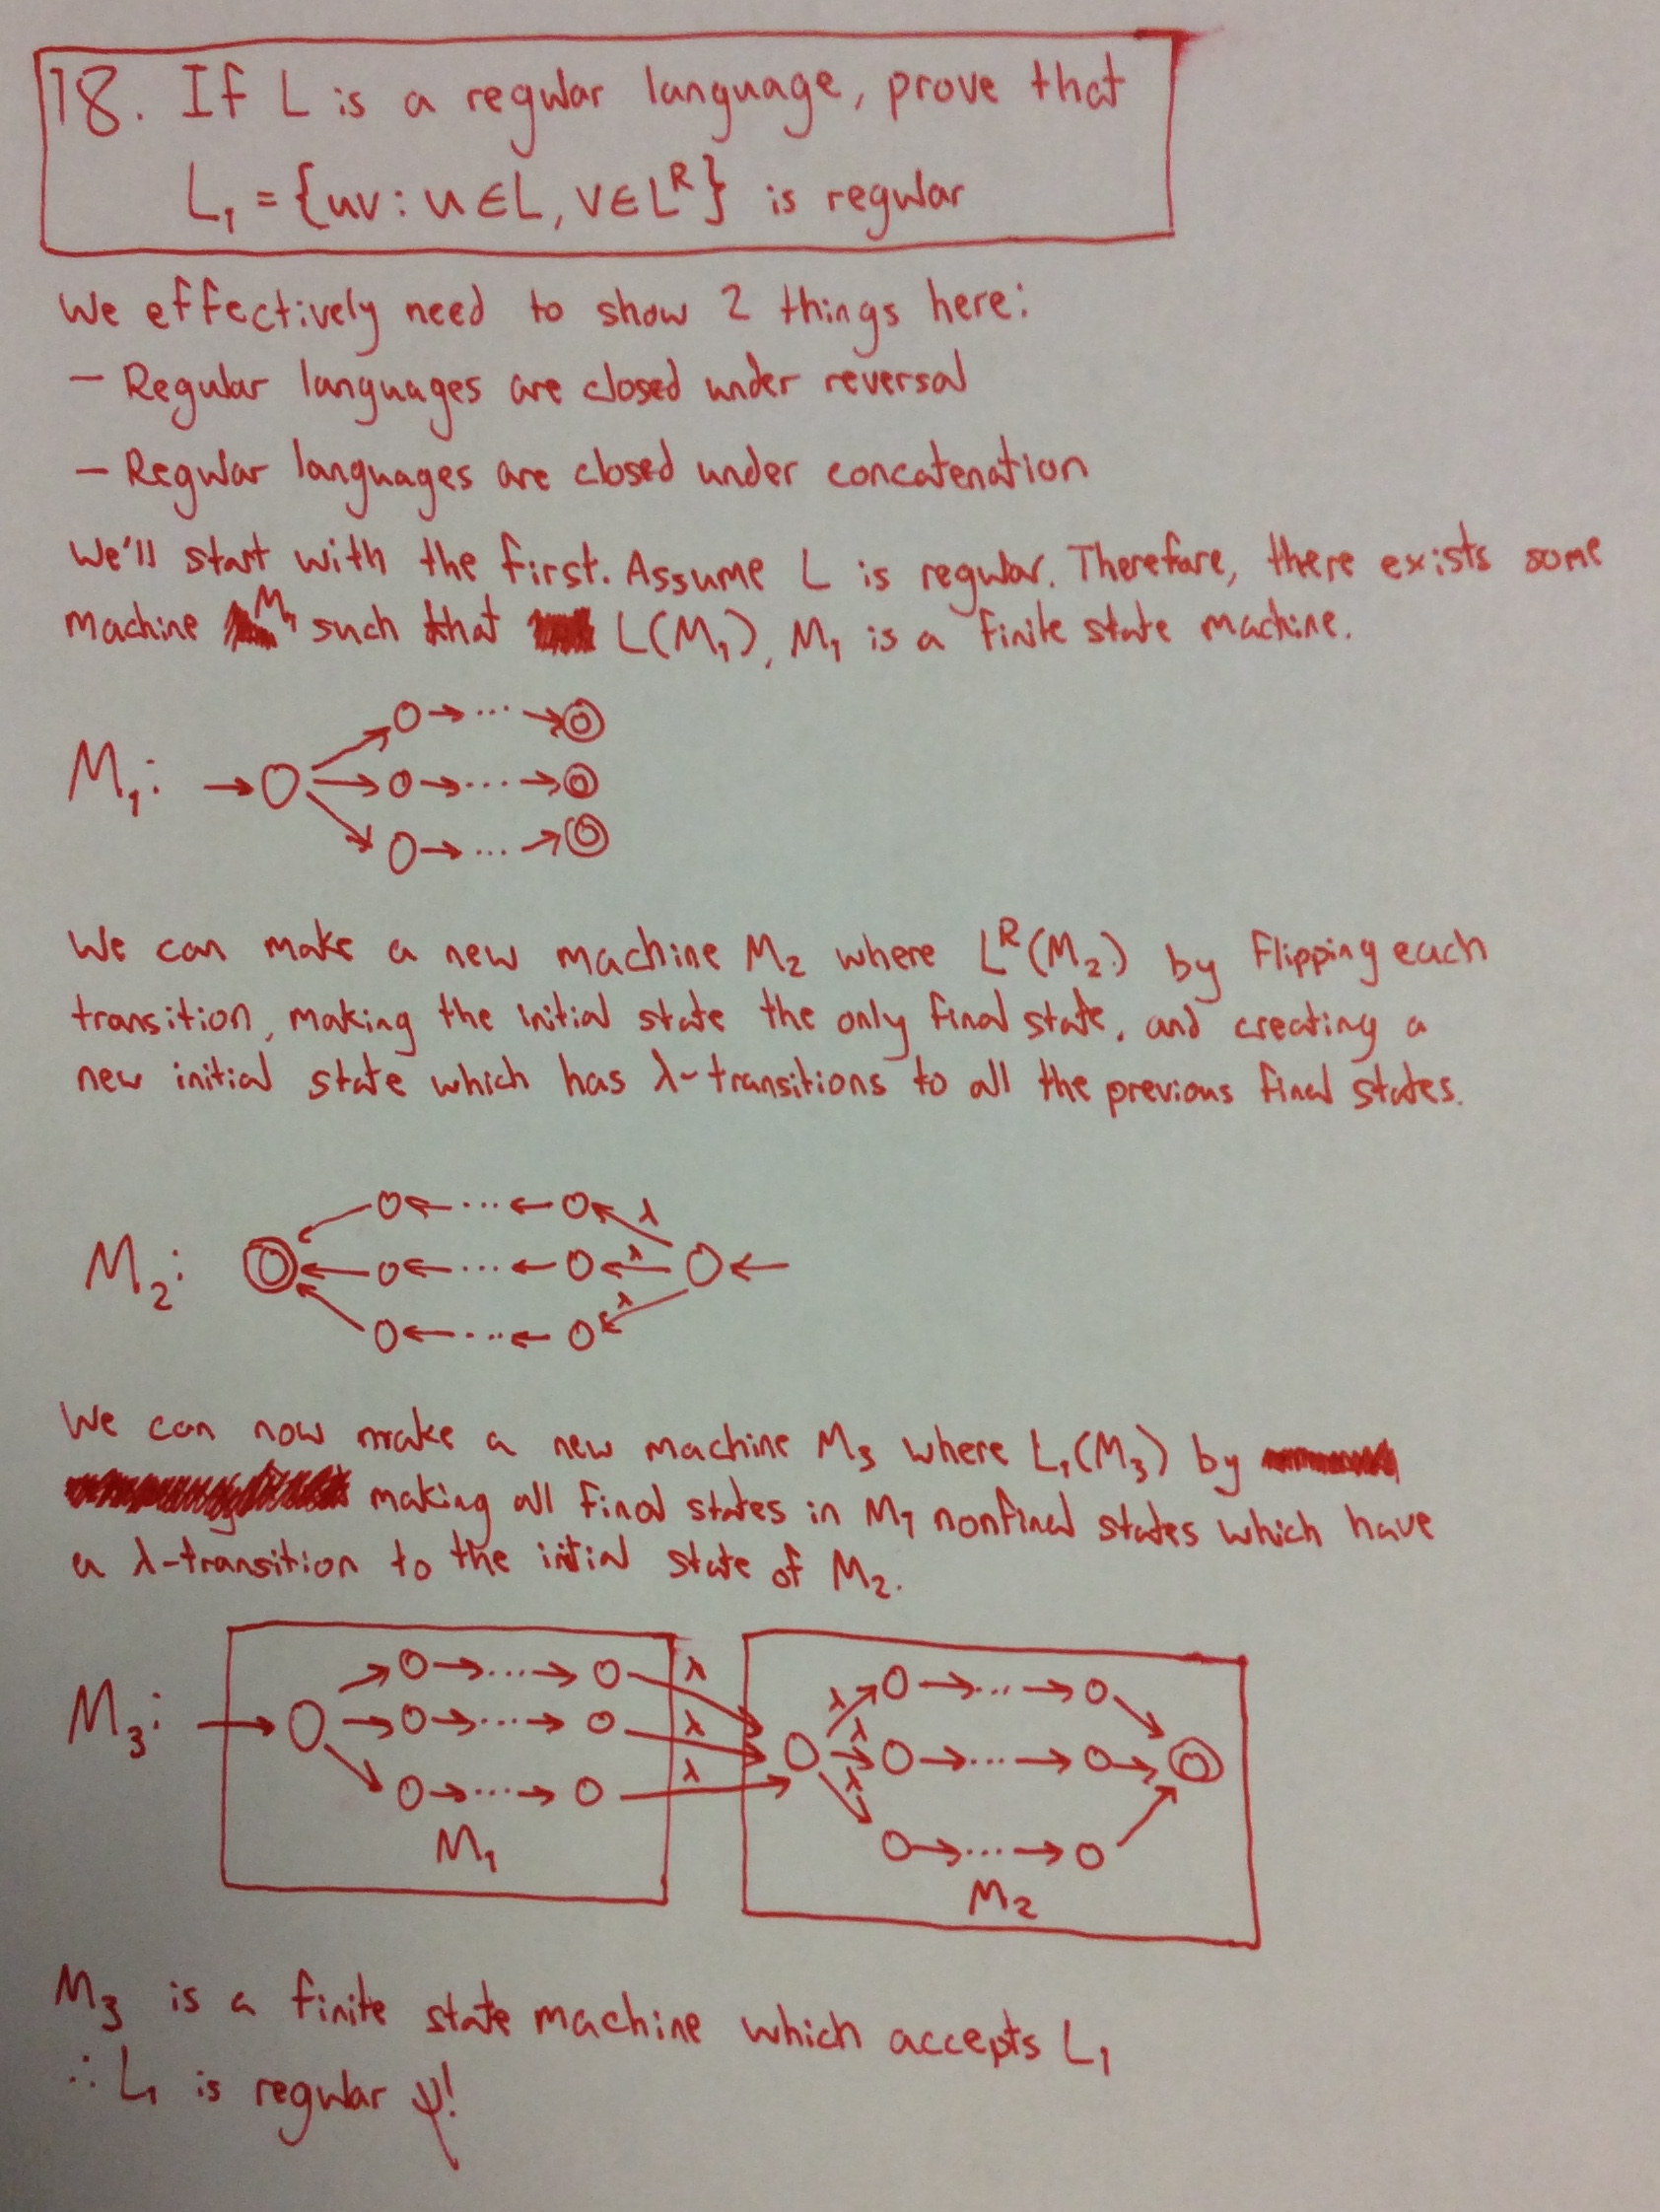 18. If L is a regular language, prove that
L₁ = {uv : u ∈ L, v ∈ Lᴿ} is regular
We effectively need to show 2 things here:
– Regular languages are closed under reversal
– Regular languages are closed under concatenation
We'll start with the first. Assume L is regular. Therefore, there exists some
machine M₁ such that L(M₁), M₁ is a finite state machine.
M₁:
We can make a new machine M₂ where Lᴿ(M₂) by flipping each
transition, making the initial state the only final state, and creating a
new initial state which has λ-transitions to all the previous final states.
λ
M₂: λ
λ
We can now make a new machine M₃ where L₁(M₃) by
making all final states in M₁ nonfinal states which have
a λ-transition to the initial state of M₂.
λ λ
M₃: λ λ
λ λ
M₁
M₂
M₃ is a finite state machine which accepts L₁
∴ L₁ is regular !